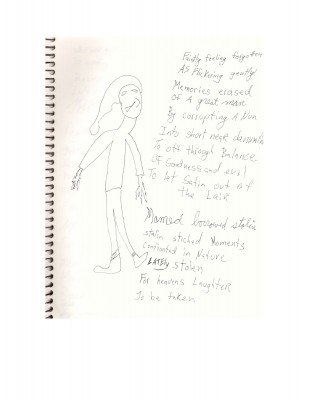 Faintly feeling forgotten
As Flickring gently
Memories erased
of A great man
By corrupting A Nun
Into short neck
To off through Balance
Of Goodness and evil
To let Satin out of
the Lair
borrowed stolen
stalin stiched Moments
Confronted in Nature
LATELY stolen
For heavens Laughter
To be taken